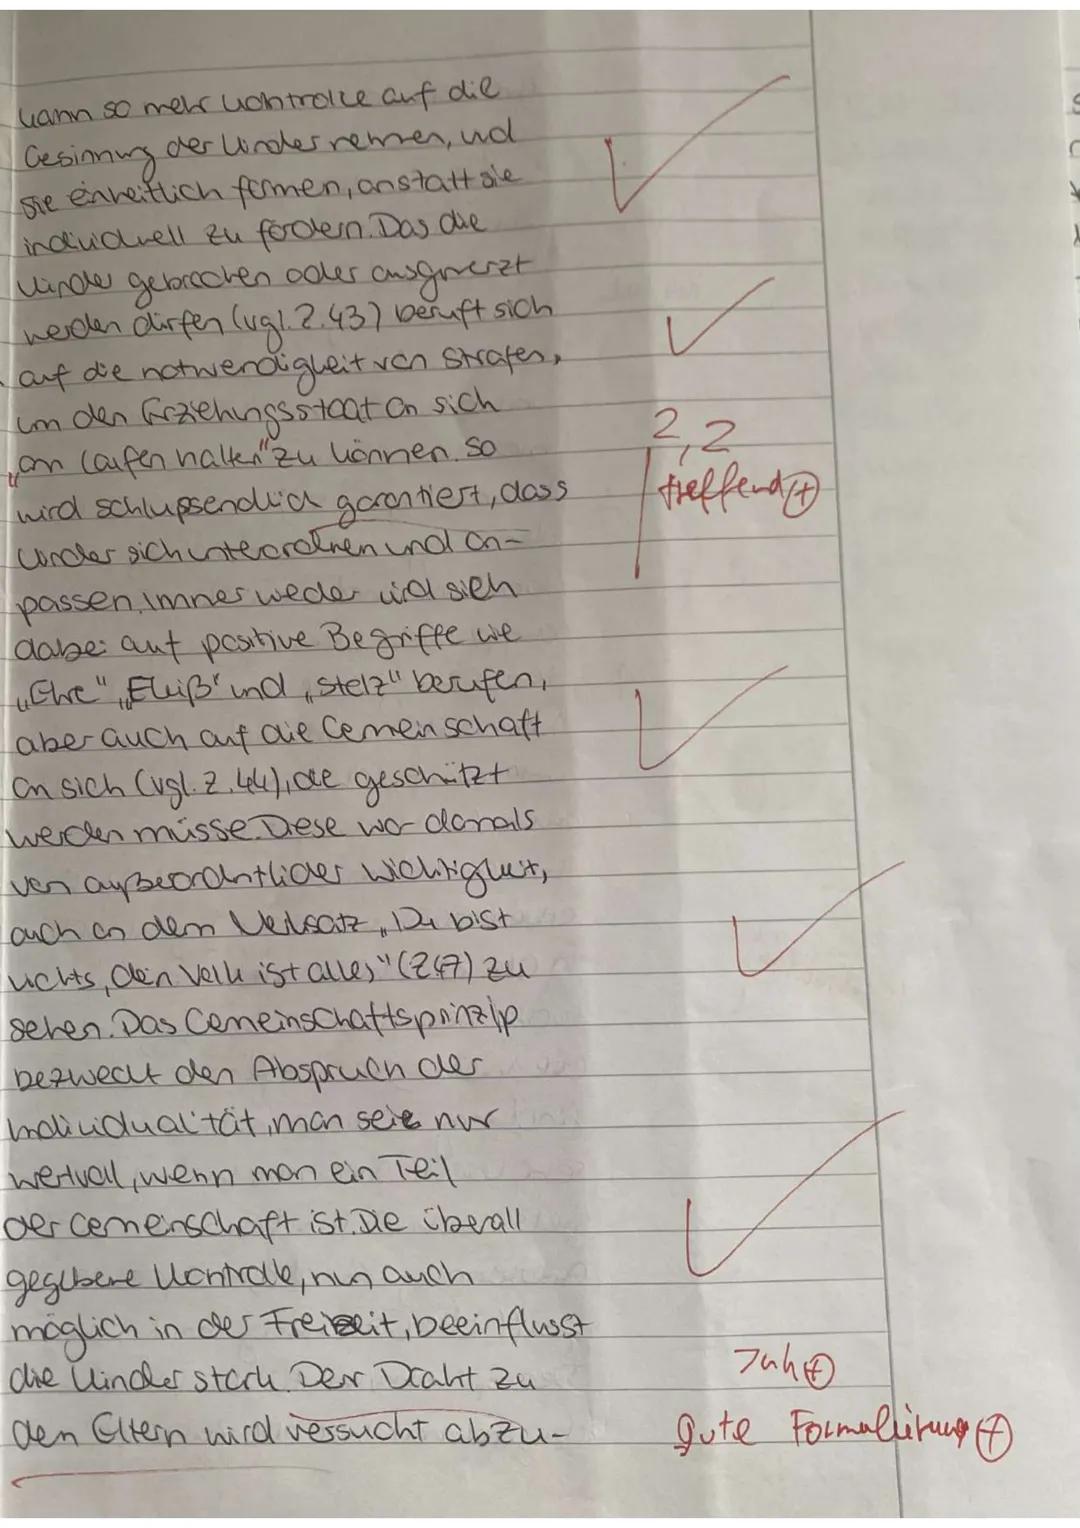 kann so mehr Kontrolle auf die
Gesinnung der Kinder nehmen, und
sie einheitlich formen, anstatt sie
individuell zu fördern. Das die
Kinder gebrochen oder ausgmerzt
werden dürfen (vgl. Z.43) beruft sich
auf die notwendigkeit von Strafen,
um den Erziehungsstaat an sich
„am laufen halten" zu können. So
2,2
wird schlußsendlich garantiert, dass
treffend (+)
Kinder sich unterordnen und an-
passen. Immer wieder wird sich
dabei auf positive Begriffe wie
„Ehre", „Fleiß" und „Stolz" berufen,
aber auch auf die Gemeinschaft
an sich (vgl. Z.44), die geschützt
werden müsse. Diese war damals
von außerordentlicher Wichtigkeit,
auch an dem Leitsatz „Du bist
nichts, dein Volk ist alles" (Z47) zu
sehen. Das Gemeinschaftsprinzip
bezweckt den Abspruch der
Individualität, man seie nur
wertvoll, wenn man ein Teil
der Gemeinschaft ist. Die überall
gegebene Kontrolle, nun auch
möglich in der Freizeit, beeinflusst
die Kinder stark. Der Draht zu
Inh (+)
den Eltern wird versucht abzu-
gute Formulierung (+)